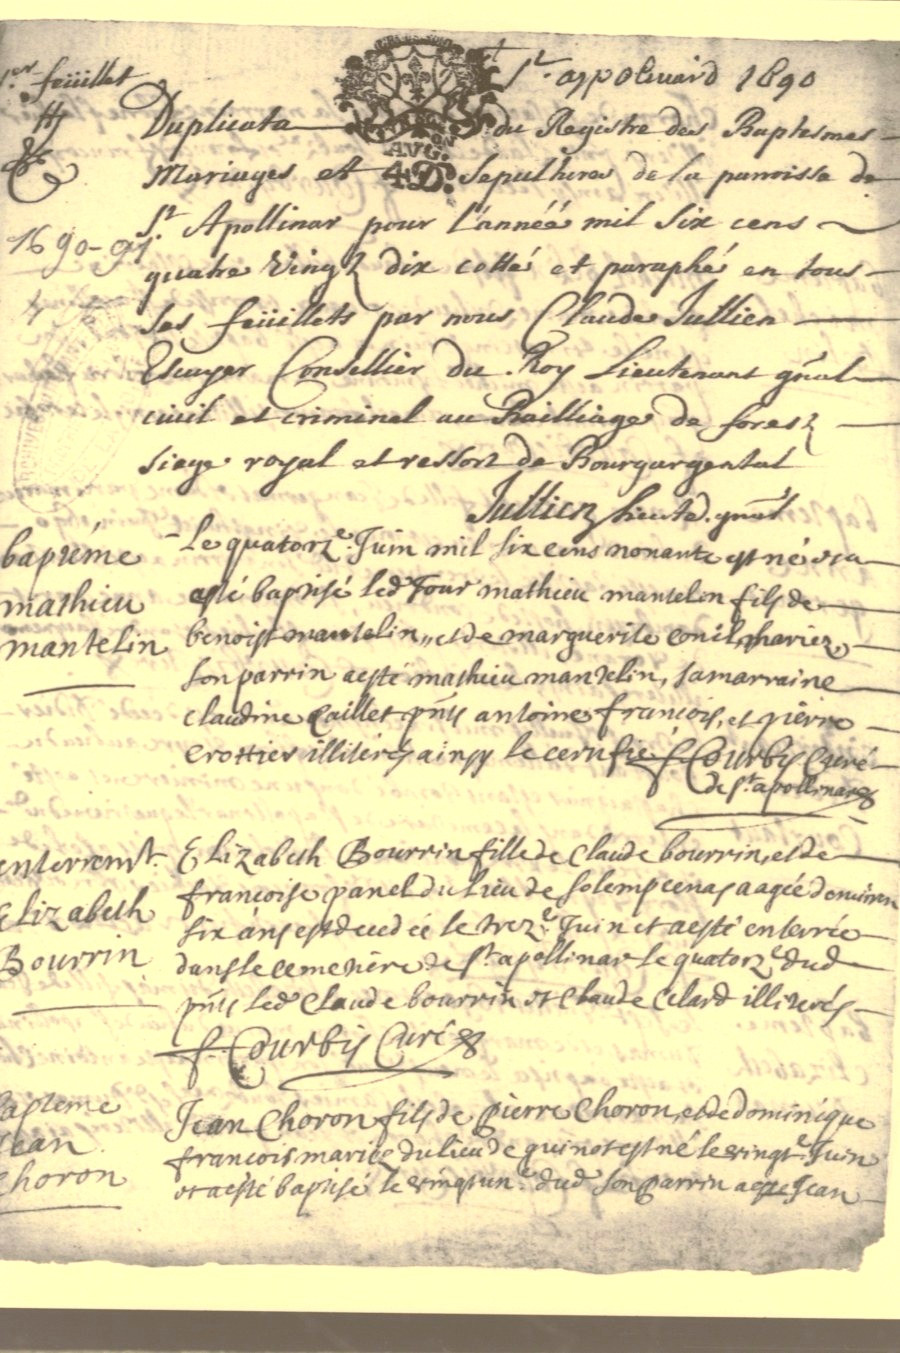 1er feüillet
St appolinard 1690
Duplicata du Registre des Baptesmes
Mariages et Sepultures de la parroisse de
AVG.
4 D.
1690-91.
St Apollinar pour l'année mil six cens
quatre vingt dix cotté et paraphé en tous
ses feüillets par nous Claude Jullien
Escuyer Consellier du Roy Lieutenant gñal
civil et criminel au Bailliage de forest
siege royal et ressort de Bourgargental
Jullien Lieutẽ. gñal
baptéme
mathieu
mantelin
Le quatorze. Juin mil six cens nonante est né et a
esté baptisé led Jour mathieu mantelin fils de
benoist mantelin, et de marguerite mariez,
son parrin aesté mathieu mantelin, sa marraine
claudine Caillet pñts antoine françois, et pierre
Crottier illiterés ainsy le certifie f Courbis Curé
de St apollinar
enterremt.
Elizabeth
Bourrin
Elizabeth Bourrin fille de Claude bourrin, et de
françoise panel du lieu de solempcenas aagée denviron
six ans est decedée le treze. Juin et aesté enterrée
dans le cemetiére de St apollinar le quatorze dud
pñts led Claude bourrin et Claude Celard illiterés
f. Courbis Curé
bapteme
Jean
Choron
Jean Choron fils de Pierre Choron, et de dominique
francois mariez du lieu de quinot est né le vingt. Juin
et aesté baptisé le vingt un. dud son Parrin aeste Jean